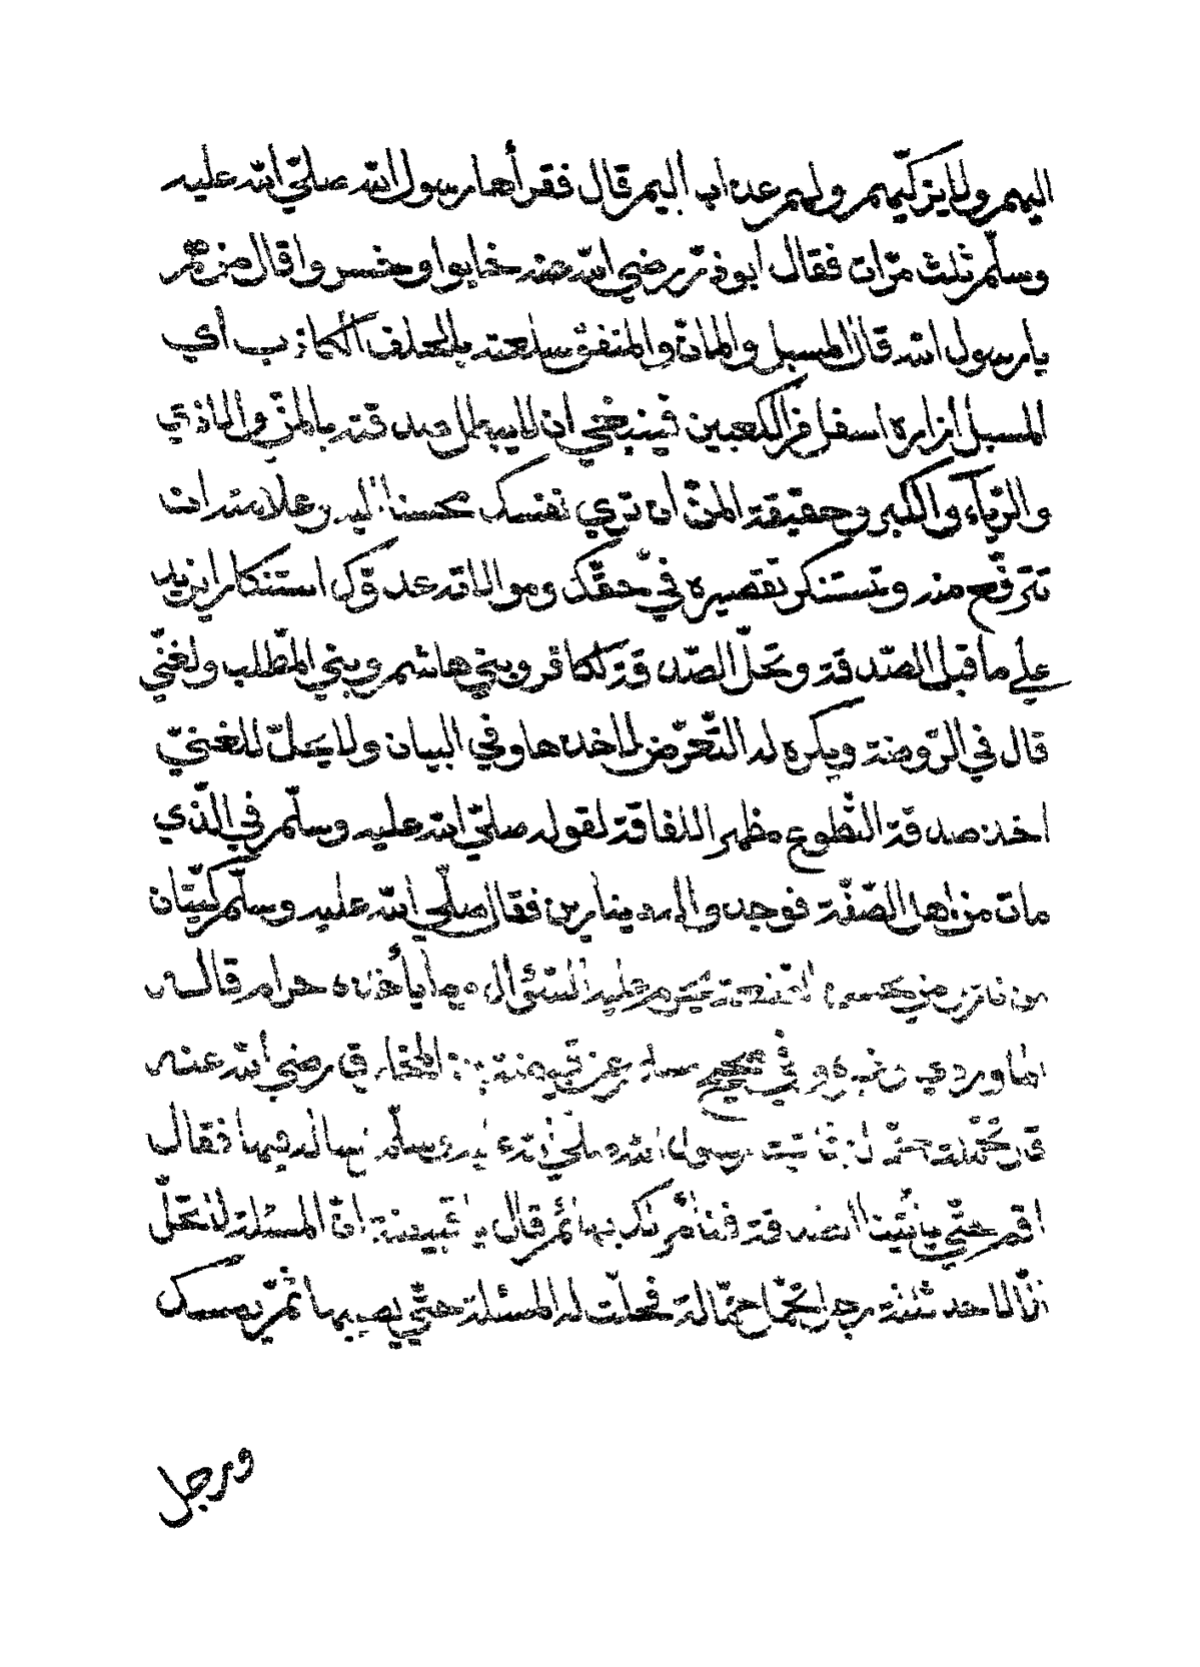 اليهم ولا يزكّيهم ولهم عذاب اليم قال فقرأها رسول الله صلّي الله عليه
وسلّم ثلث مرّات فقال ابوذرّ رضي الله عنه خابوا وخسروا قال من هم
يا رسول الله قال المسبل والمانّ والمنفق سلعته بالحلف الكاذب أي
المسبل ازاره اسفل من الكعبين فينبغي ان لا يبطل صدقته بالمنّ والاذي
والرّيآء والكبر وحقيقة المنّ ان تري نفسك محسنا اليه وعلامته ان
تترفّع منه وتستنكر تقصيره في حقّك وموالاقه عدوّك استنكارا يزيد
علي ما قبل الصّدقة وتحلّ الصّدقة لكافر وبني هاشم وبني المطّلب ولغنّي
قال في الرّوضة ويكره له التّعرّض لاخذها وفي البيان ولا يحلّ للغنيّ
اخذ صدقة التّطوع مظهرا للفاقة لقوله صلّي الله عليه وسلّم في الّذي
مات من اهل الصّفّة فوجدوا له دينارين فقال صلّي الله عليه وسلّم كيّتان
من نار ومن يحسن الصّنعة يحرم عليه السّئوال وما يأخذه حرام قاله
الماوردي وغيره وفي صحيح مسلم عن قبيصة بن المخارق رضي الله عنه
قال تحمّلت حمّالة فأتيت رسول الله صلّي الله عليه وسلّم اسأله فيها فقال
اقم حتّي يأتينا الصّدقة فنأمر لك بها ثم قال يا قبيصة انّ المسئلة لا تحلّ
الّا لاحد ثلثة رجل تحمّل حمّالة فحلّت له المسئلة حتّي يصيبها ثمّ يمسك
ورجل